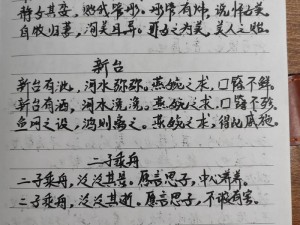 静女其娈，贻我彤管。彤管有炜，说怿女美。
自牧归荑，洵美且异。匪女之为美，美人之贻。
新台
新台有泚，河水弥弥。燕婉之求，口篨不鲜。
新台有洒，河水洗洗。燕婉之求，口篨不殄。
鱼网之设，鸿则离之。燕婉之求，得此戚施。
二子乘舟
二子乘舟，泛泛其景。愿言思子，中心养养。
二子乘舟，泛泛其逝。愿言思子，不瑕有害。